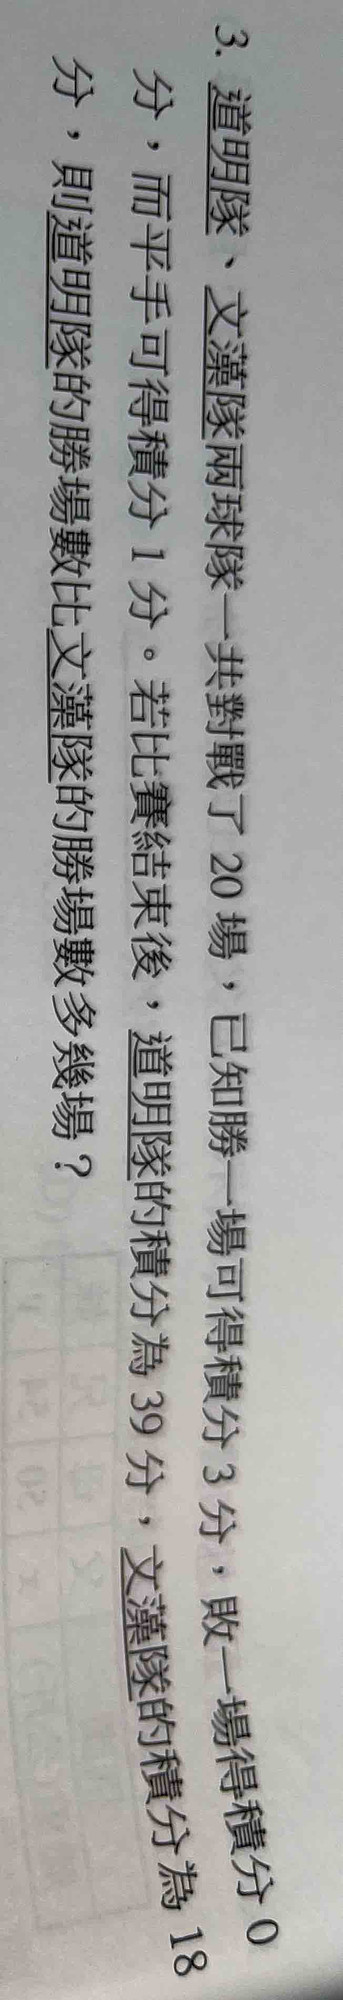 3. 道明隊、文藻隊兩球隊一共對戰了 20 場，已知勝一場可得積分 3 分，敗一場得積分 0
分，而平手可得積分 1 分。若比賽結束後，道明隊的積分為 39 分，文藻隊的積分為 18
分，則道明隊的勝場數比文藻隊的勝場數多幾場？